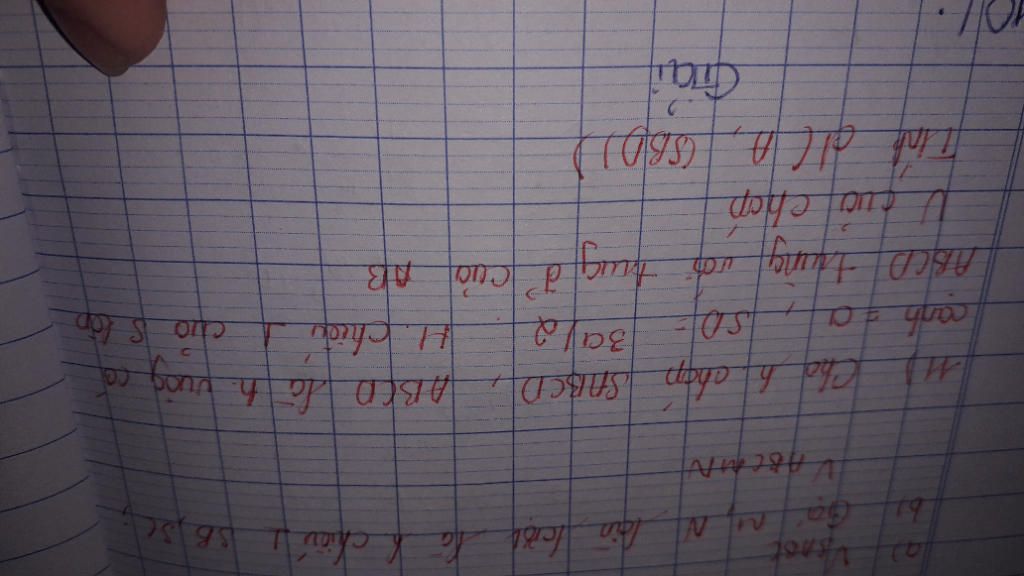 a)
b) Gọi M, N lần lượt là h chiếu ⊥ SB, SC,
V ABCMN
11) Cho h. chóp SABCD, ABCD là h. vuông có
cạnh = a, SD = 3a/2. H. chiếu ⊥ của S lên
ABCD trùng với trung đ' của AB
V của chóp
Tính d(A, (SBD))
Giải